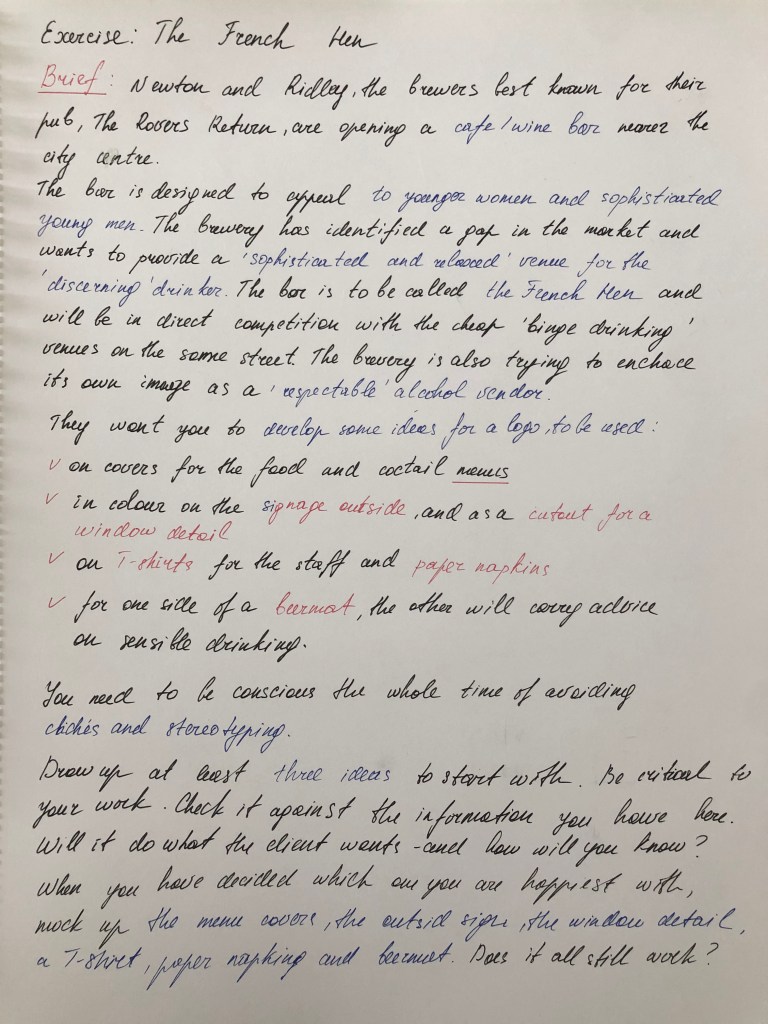 Exercise: The French Hen
Brief: Newton and Ridley, the brewers best known for their
pub, The Rovers Return, are opening a cafe/wine bar nearer the
city centre.
The bar is designed to appeal to younger women and sophisticated
young men. The brewery has identified a gap in the market and
wants to provide a 'sophisticated and relaxed' venue for the
'discerning' drinker. The bar is to be called the French Hen and
will be in direct competition with the cheap 'binge drinking'
venues on the same street. The brewery is also trying to enchace
its own image as a 'respectable' alcohol vendor.
They want you to develop some ideas for a logo, to be used:
✓ on covers for the food and coctail menus
✓ in colour on the signage outside, and as a cutout for a
window detail
✓ on T-shirts for the staff and paper napkins
✓ for one side of a beermat, the other will carry advice
on sensible drinking.
You need to be conscious the whole time of avoiding
clichés and stereotyping.
Draw up at least three ideas to start with. Be critical to
your work. Check it against the information you have here.
Will it do what the client wants - and how will you know?
When you have decided which one you are happiest with,
mock up the menu covers, the outsid sign, the window detail,
a T-shirt, paper napking and beermat. Does it all still work?